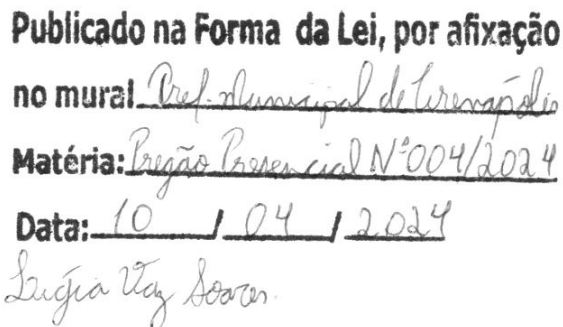 Publicado na Forma da Lei, por afixação
no mural Pref. Municipal de Cirenápolis
Matéria: Pregão Presencial Nº 004/2024
Data: 10 / 04 / 2024
Lígia Vaz Soares.